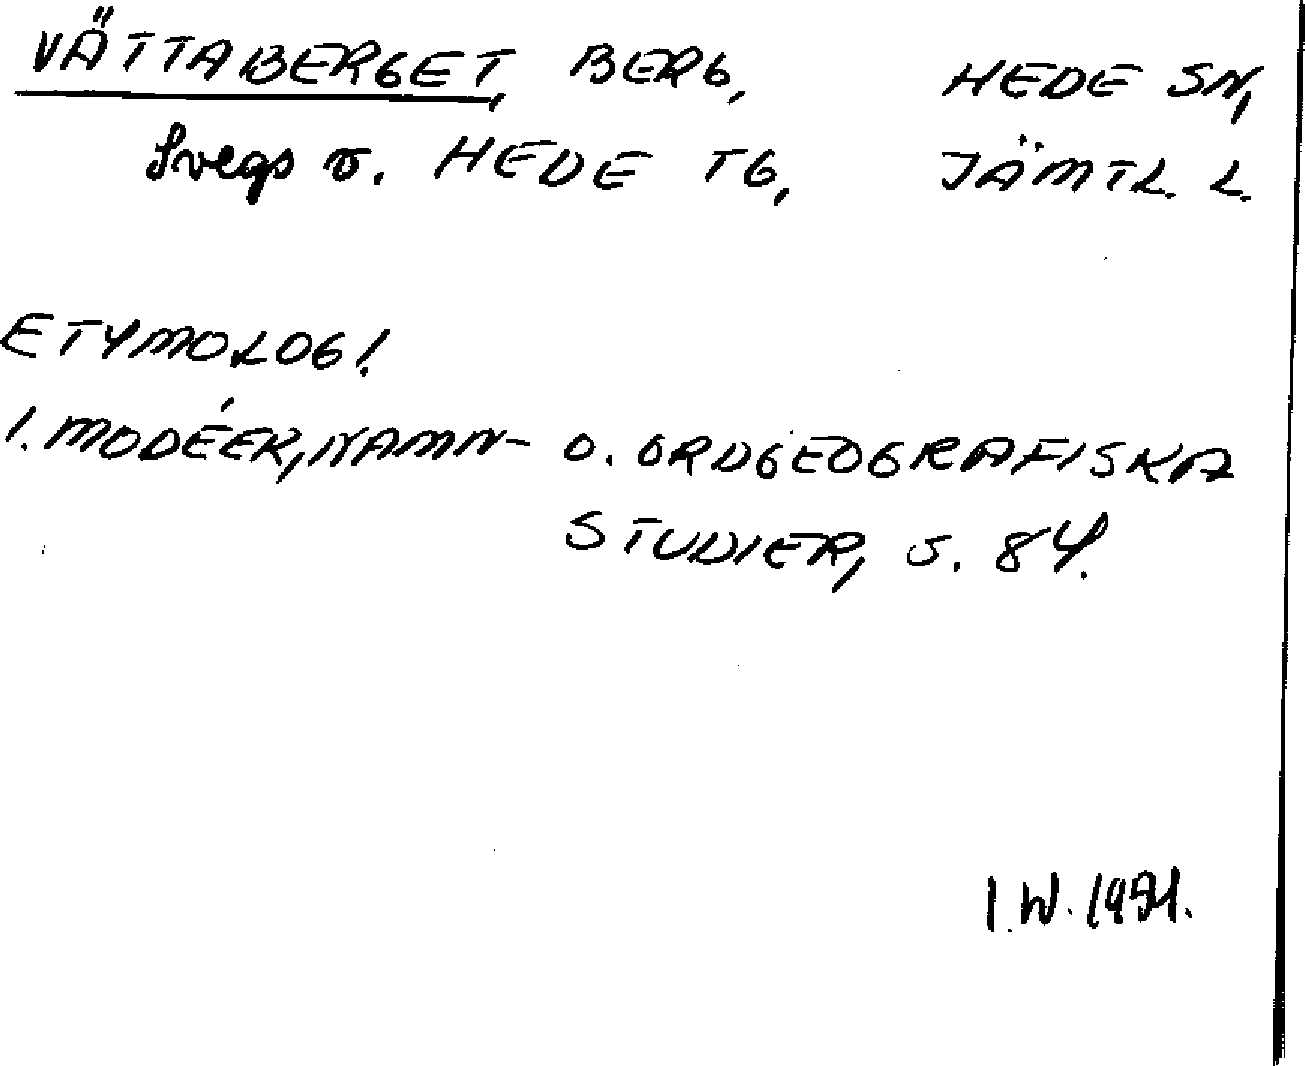 VÄTTABERGET, BERG, HEDE SN,
Svegs o. HEDE TG, JÄMTL. L.
ETYMOLOGI.
I. MODÉER, NAMN- O. ORDGEOGRAFISKA
STUDIER, S. 84.
I.W.